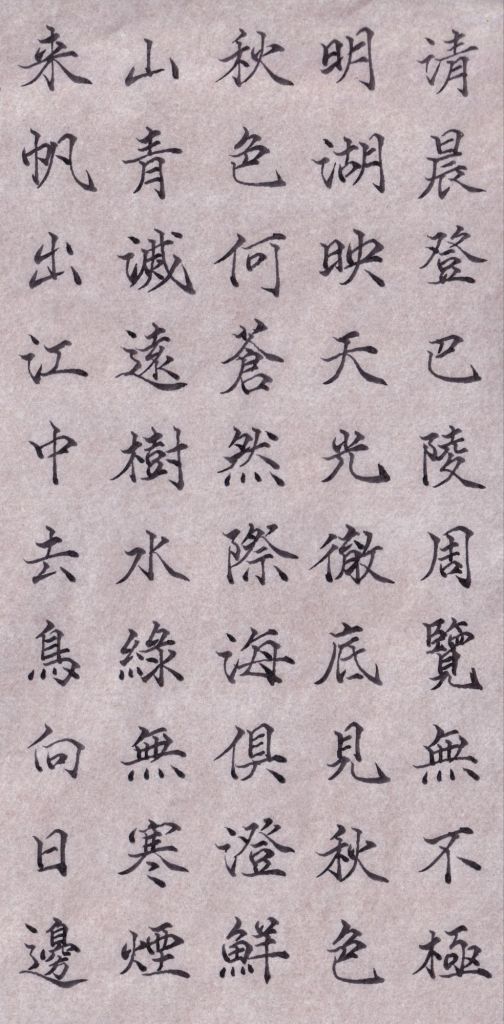 清晨登巴陵周覽無不極
明湖映天光徹底見秋色
秋色何蒼然際海俱澄鮮
山青滅遠樹水綠無寒煙
来帆出江中去鳥向日邊